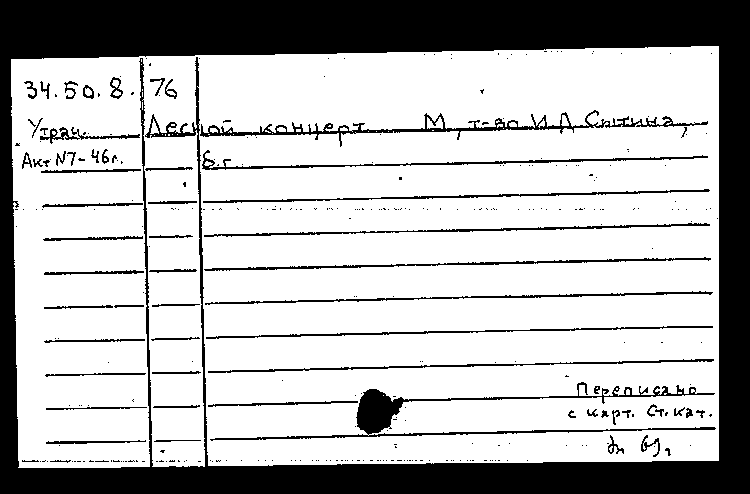 34.50.8.76
Утрач. Лесной концерт М, т-во И Д Сытина,
Акт N7-46г. б.г
Переписано
с карт. Ст. кат.